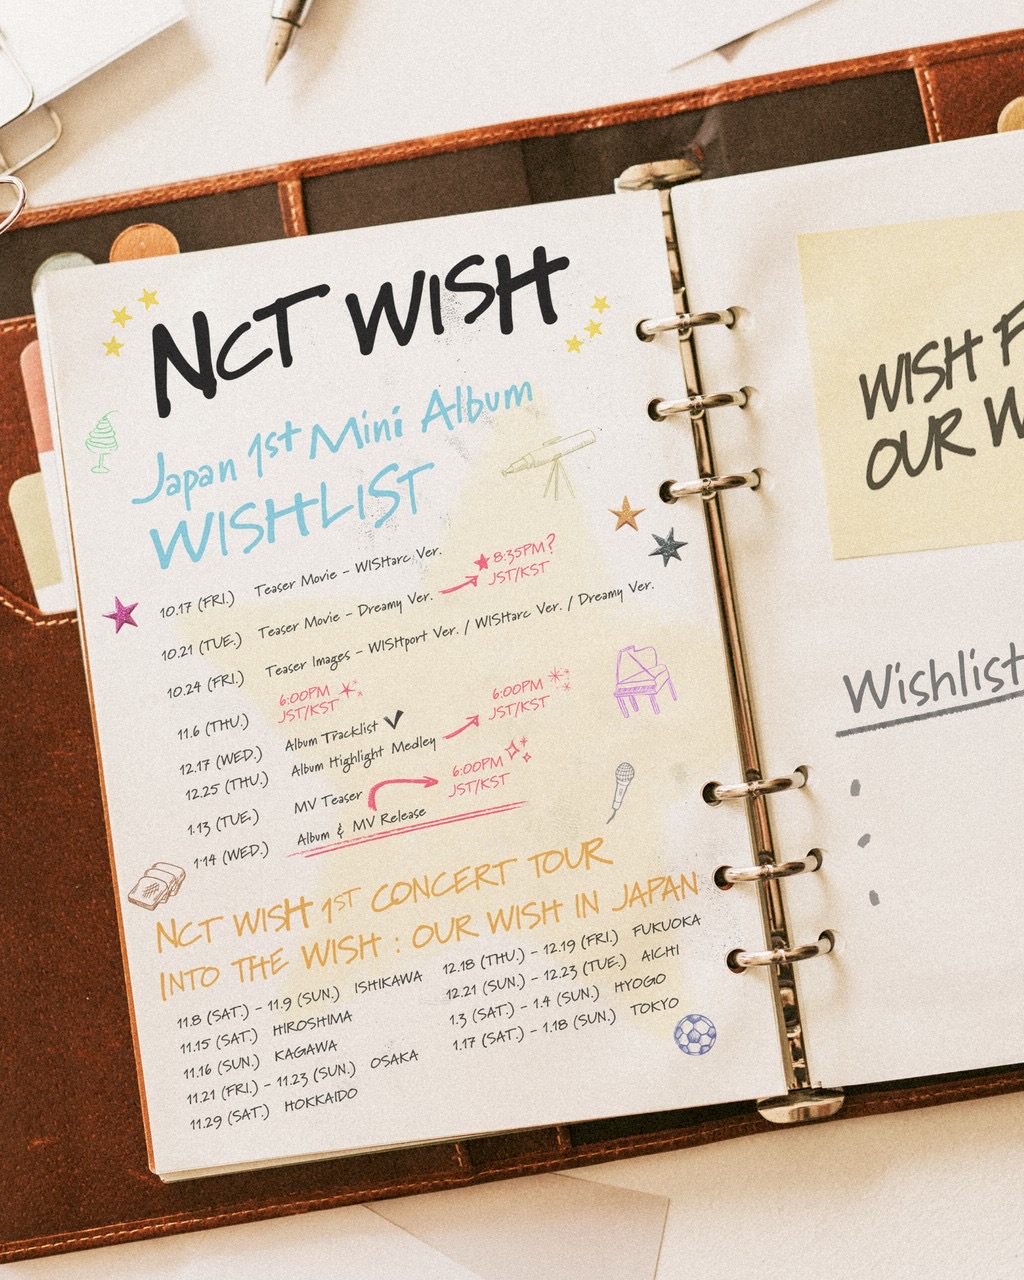 NCT WISH
Japan 1st Mini Album
WISHLIST
10.17 (FRI.) Teaser Movie - WISHarc Ver.
8:35PM?
JST/KST
10.21 (TUE.) Teaser Movie - Dreamy Ver.
10.24 (FRI.) Teaser Images - WISHport Ver. / WISHarc Ver. / Dreamy Ver.
11.6 (THU.) 6:00PM
JST/KST
12.17 (WED.) Album Tracklist
12.25 (THU.) Album Highlight Medley
6:00PM
JST/KST
1.13 (TUE.) MV Teaser
6:00PM
JST/KST
1.14 (WED.) Album & MV Release
NCT WISH 1ST CONCERT TOUR
INTO THE WISH : OUR WISH IN JAPAN
11.8 (SAT.) - 11.9 (SUN.) ISHIKAWA
11.15 (SAT.) HIROSHIMA
11.16 (SUN.) KAGAWA
11.21 (FRI.) - 11.23 (SUN.) OSAKA
11.29 (SAT.) HOKKAIDO
12.18 (THU.) - 12.19 (FRI.) FUKUOKA
12.21 (SUN.) - 12.23 (TUE.) AICHI
1.3 (SAT.) - 1.4 (SUN.) HYOGO
1.17 (SAT.) - 1.18 (SUN.) TOKYO
WISH F
OUR W
Wishlist